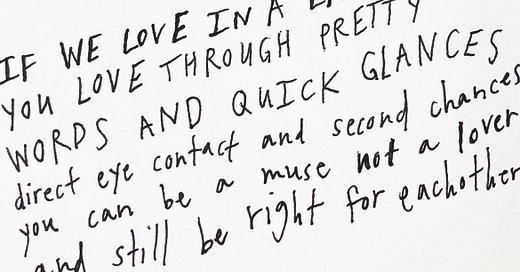 IF WE LOVE IN A
YOU LOVE THROUGH PRETTY
WORDS AND QUICK GLANCES
direct eye contact and second chances
you can be a muse not a lover
and still be right for eachother